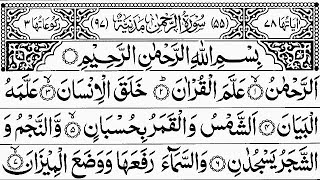 اٰیَاتُهَا ٧٨ (٥٥) سُوْرَةُ الرَّحْمٰنِ مَدَنِیَّةٌ (٩٧) رُکُوْعَاتُهَا ٣
بِسْمِ اللّٰهِ الرَّحْمٰنِ الرَّحِیْمِ
اَلرَّحْمٰنُ ۙ﴿١﴾ عَلَّمَ الْقُرْاٰنَ ؕ﴿٢﴾ خَلَقَ الْاِنْسَانَ ۙ﴿٣﴾ عَلَّمَهُ
الْبَیَانَ ﴿٤﴾ اَلشَّمْسُ وَالْقَمَرُ بِحُسْبَانٍ ۪﴿٥﴾ وَّالنَّجْمُ وَ
الشَّجَرُ یَسْجُدٰنِ ﴿٦﴾ وَالسَّمَآءَ رَفَعَهَا وَوَضَعَ الْمِیْزَانَ ۙ﴿٧﴾